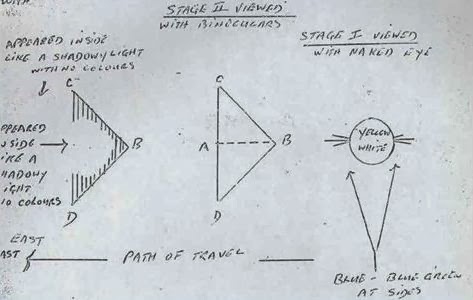 WITH
STAGE II VIEWED
WITH BINOCULARS
STAGE I VIEWED
WITH NAKED EYE
APPEARED INSIDE
LIKE A SHADOWY LIGHT
WITH NO COLOURS
C
C
A
B
B
YELLOW
WHITE
D
D
PPEARED
SIDE
IKE A
HADOWY
IGHT
O COLOURS
EAST
AST
PATH OF TRAVEL
BLUE - BLUE GREEN
AT SIDES